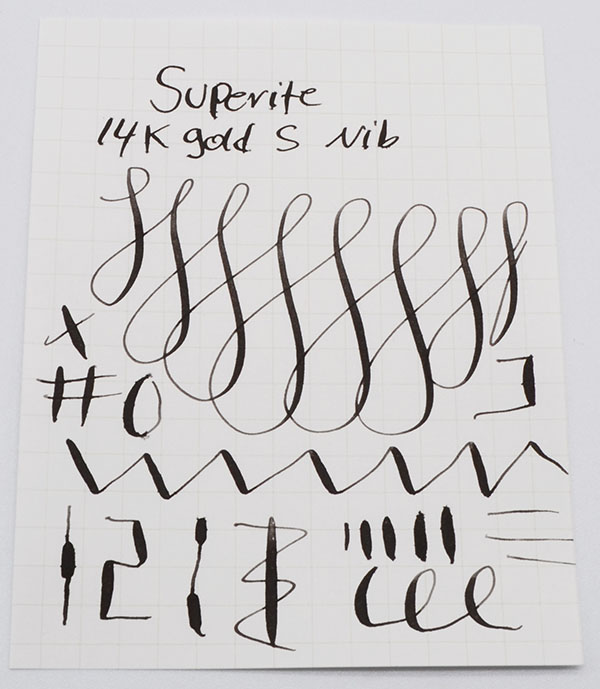 Superite
14K gold S Nib